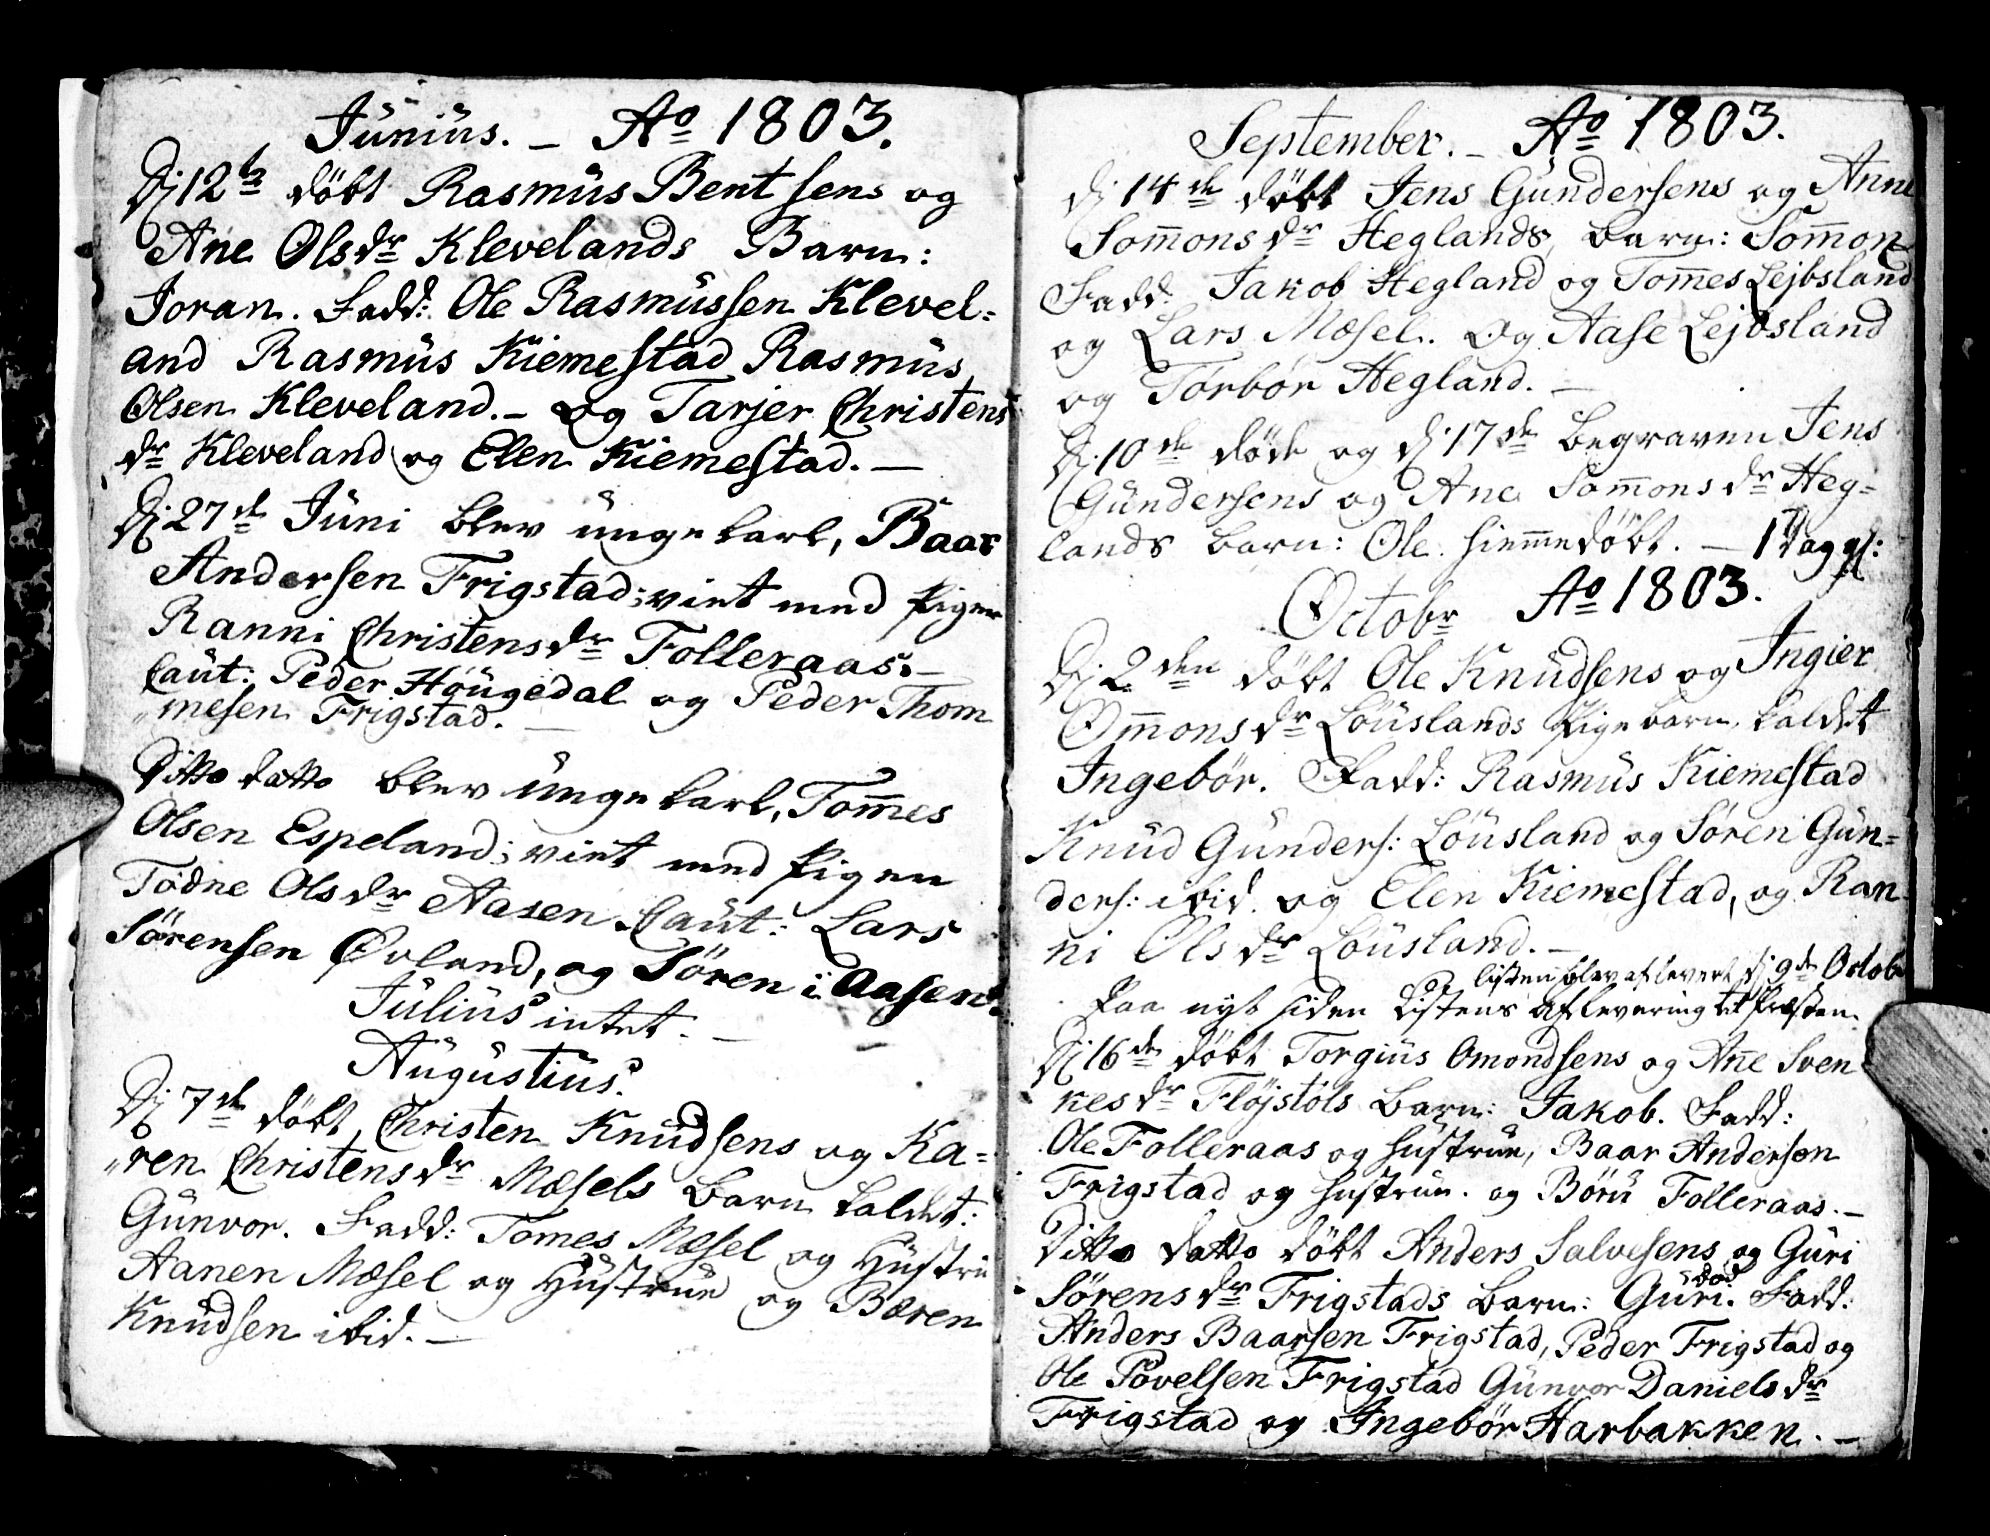 Junius. – Ao 1803.
Dj 12te döbt Rasmus Bentsens og
Ane Olsdr Klevelands Barn:
Joran. Fadd: Ole Rasmussen Klevel=
and Rasmus Kiemestad Rasmus
Olsen Kleveland. – og Tarjer Christens
dr Kleveland og Elen Kiemestad. –
Dj 27de Juni blev unge karl, Baar
Andersen Frigstad; viet med Pigen
Ranni Christensdr Folleraas. –
Caut: Peder Höugedal og Peder Thom
"mesen Frigstad. –
Ditto datto blev unge karl, Tom̄es
Olsen Espeland; viet med Pigen
Todne Olsdr Aasen Caut: Lars
Sörensen Øvland, og Sören i Aasen.
Julius intet. –
Augustius.
Dj 7de döbt Christen Knudsens og Ka=
"ren Christensdr Mæsels Barn kaldet:
Gunvor. Fadd: Tomes Mæsel og Hustru
Aanen Mæsel og Hustrue og Bæren
Knudsen ibid. –
September. – Ao 1803.
dj 14de döbt Jens Gundersens og Anne
Som̄onsdr Heglands, barn: Som̄on
Fadd: Jakob Hegland og Tom̄es Lejbsland
og Lars Mæsel. Og Aase Lejbsland
og Torbör Hegland. –
Dj 10de döde og dj 17de begraven Jens
Gundersens og Ane Som̄onsdr Heg=
lands barn: Ole. hiem̄edöbt. – 1 Dag gl:
Octobr Ao 1803.
Dj 2den döbt Ole Knudsens og Ingier
Om̄onsdr Löuslands Pigebarn, kaldet
Ingebör. Fadd: Rasmus Kiemestad
Knud Gunders: Löusland og Sören Gun=
ders: ibid. og Elen Kiemestad, og Ran
ni Olsdr Löusland. –
Listen blev aflevert dj 9de Octob
Paa nyt siden Listens aflevering til Præsten.
Dj 16de döbt Torgius Omondsens og Ane Sven
kesdr Flöjstöls Barn: Jakob. Fadd:
Ole Folleraas og hustrue, Baar Andersen
Frigstad og hustrue. og Böru Folleraas. –
Ditto datto döbt Anders Salvesens og Guri
Sörensdr Frigstads barn: Guri. Fadd:
död
Anders Baarsen Frigstad, Peder Frigstad og
Ole Povelsen Frigstad Gunvor Danielsdr
Frigstad og Ingebör Harbakken. –